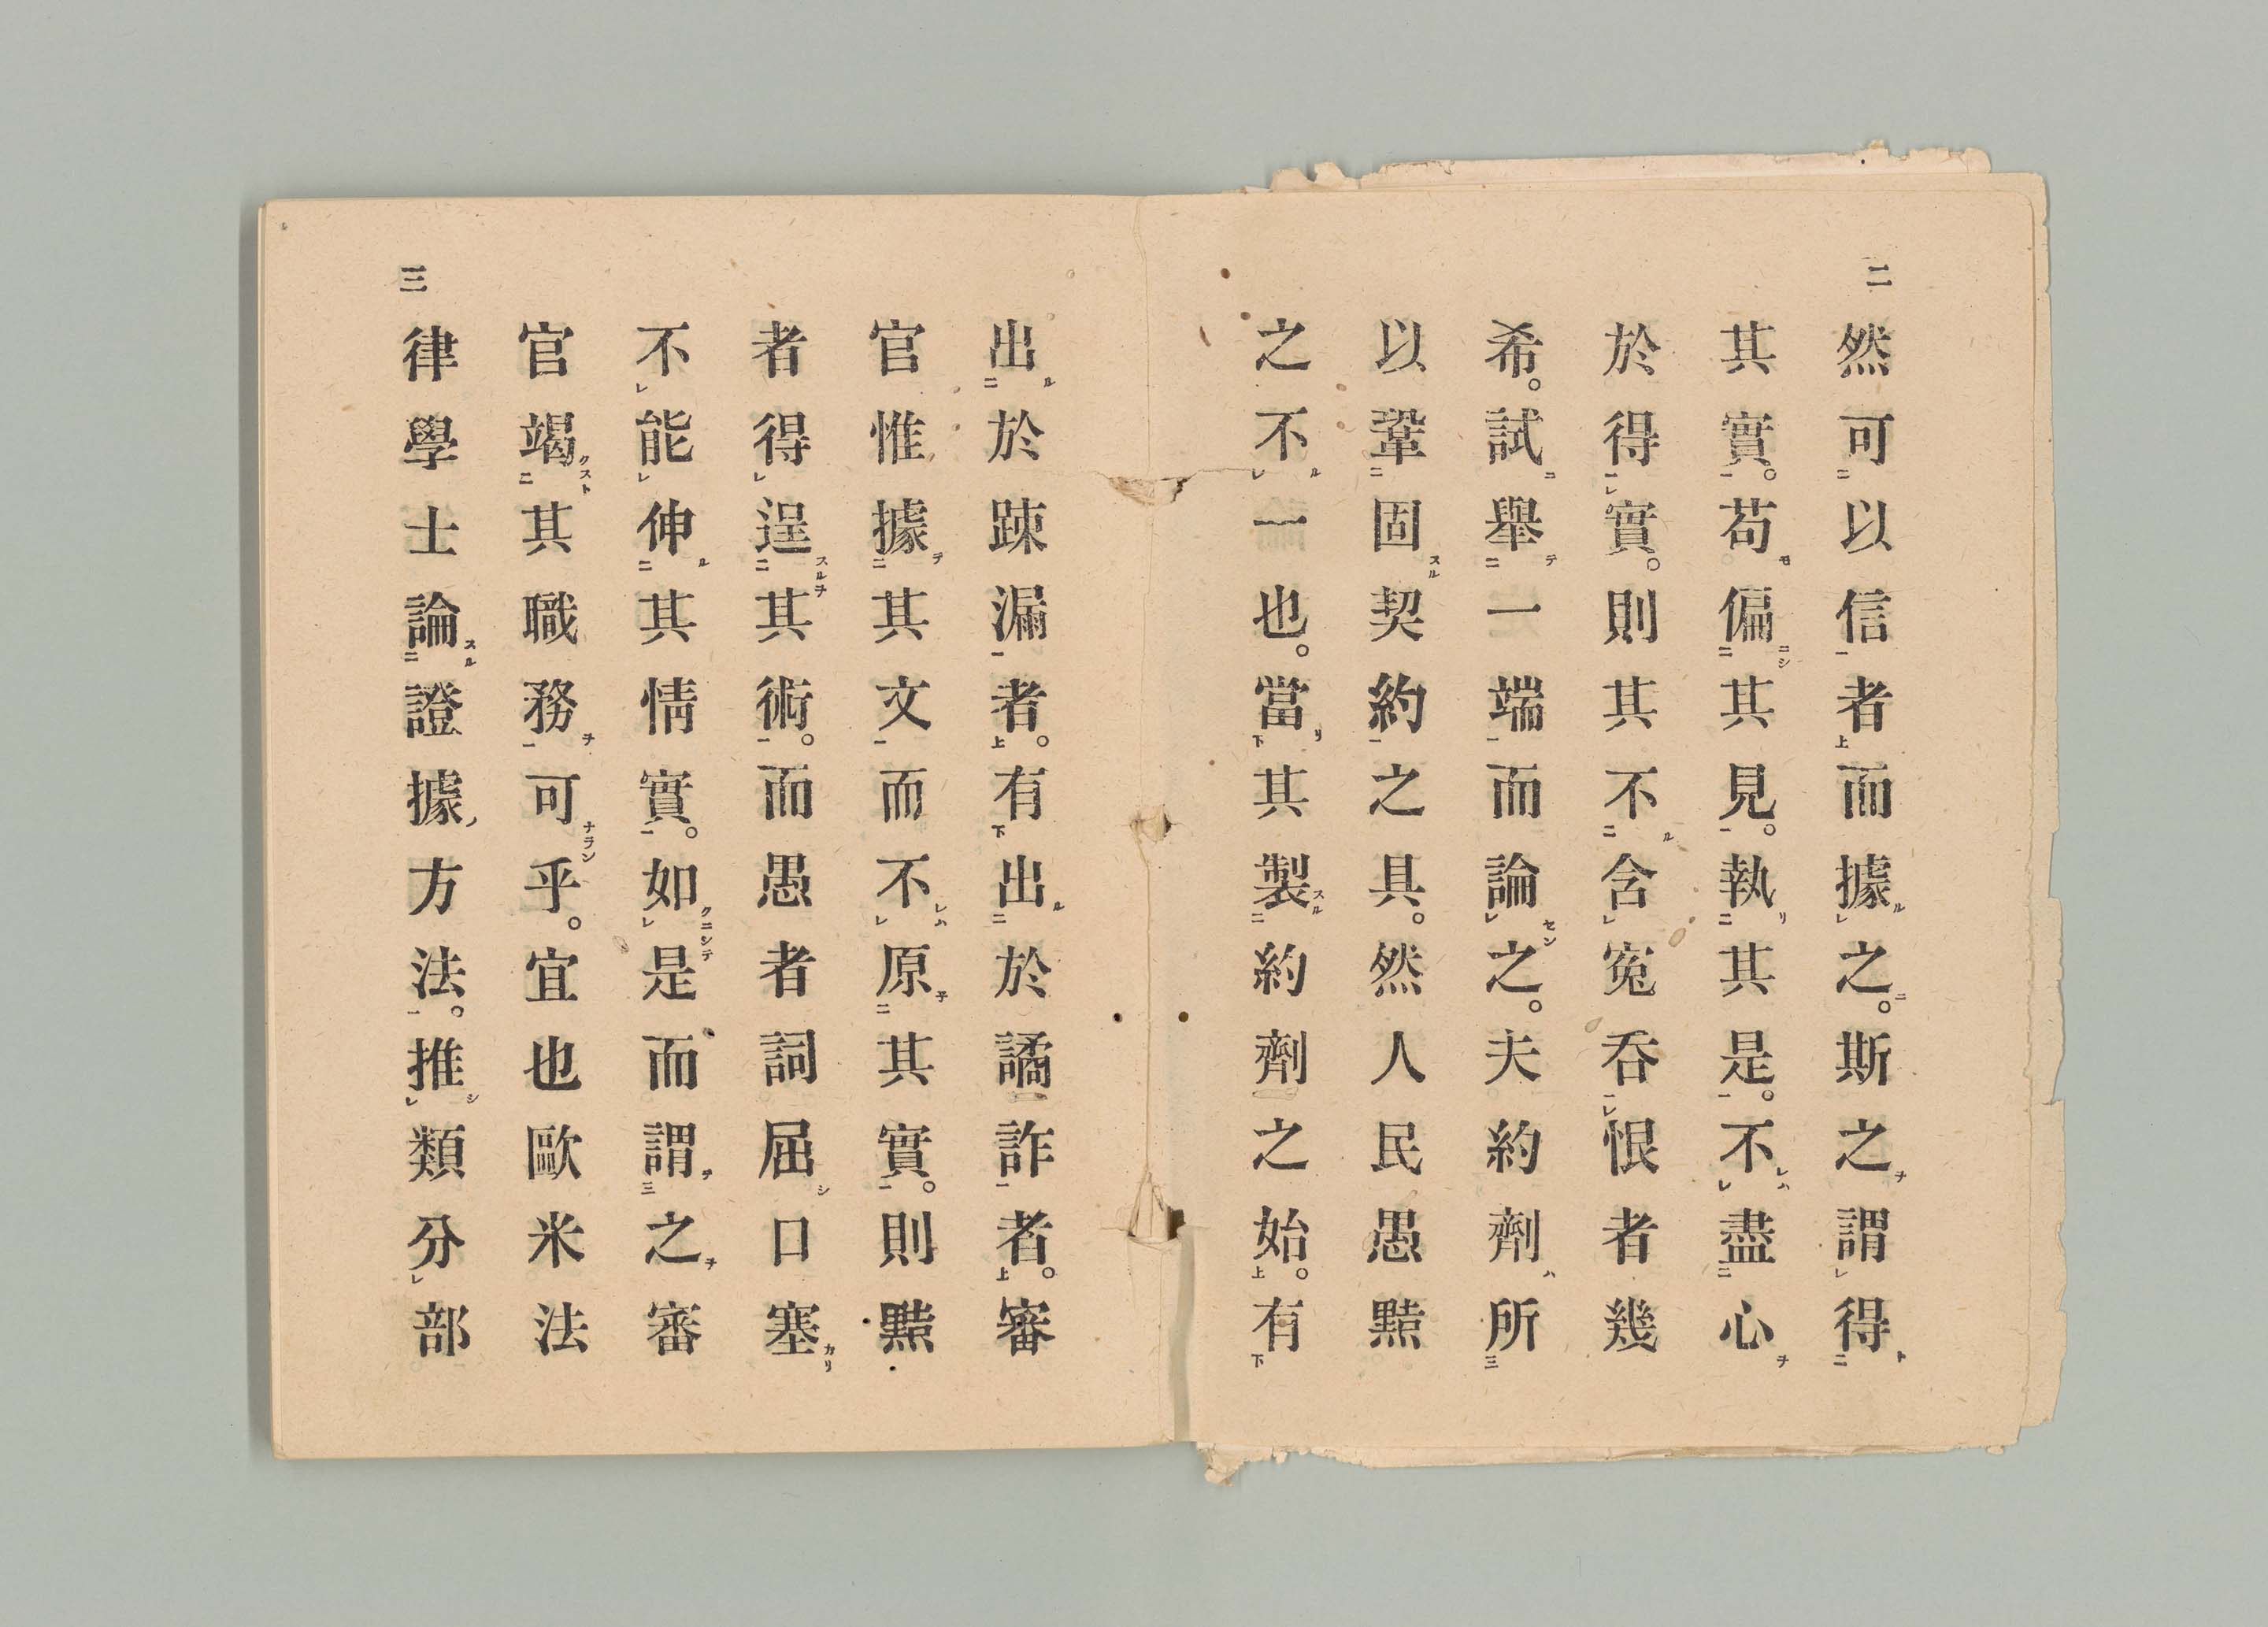 二
然可以信者而據之。斯之謂得
其實。苟偏其見。執其是。不盡心
於得實。則其不含寃呑恨者幾
希。試擧一端而論之。夫約劑所
以鞏固契約之具。然人民愚黠
之不一也。當其製約劑之始。有
出於踈漏者。有出於譎詐者。審
官惟據其文而不原其實。則黠
者得逞其術。而愚者詞屈口塞
不能伸其情實。如是而謂之審
官竭其職務可乎。宜也歐米法
律學士論證據方法。推類分部
三